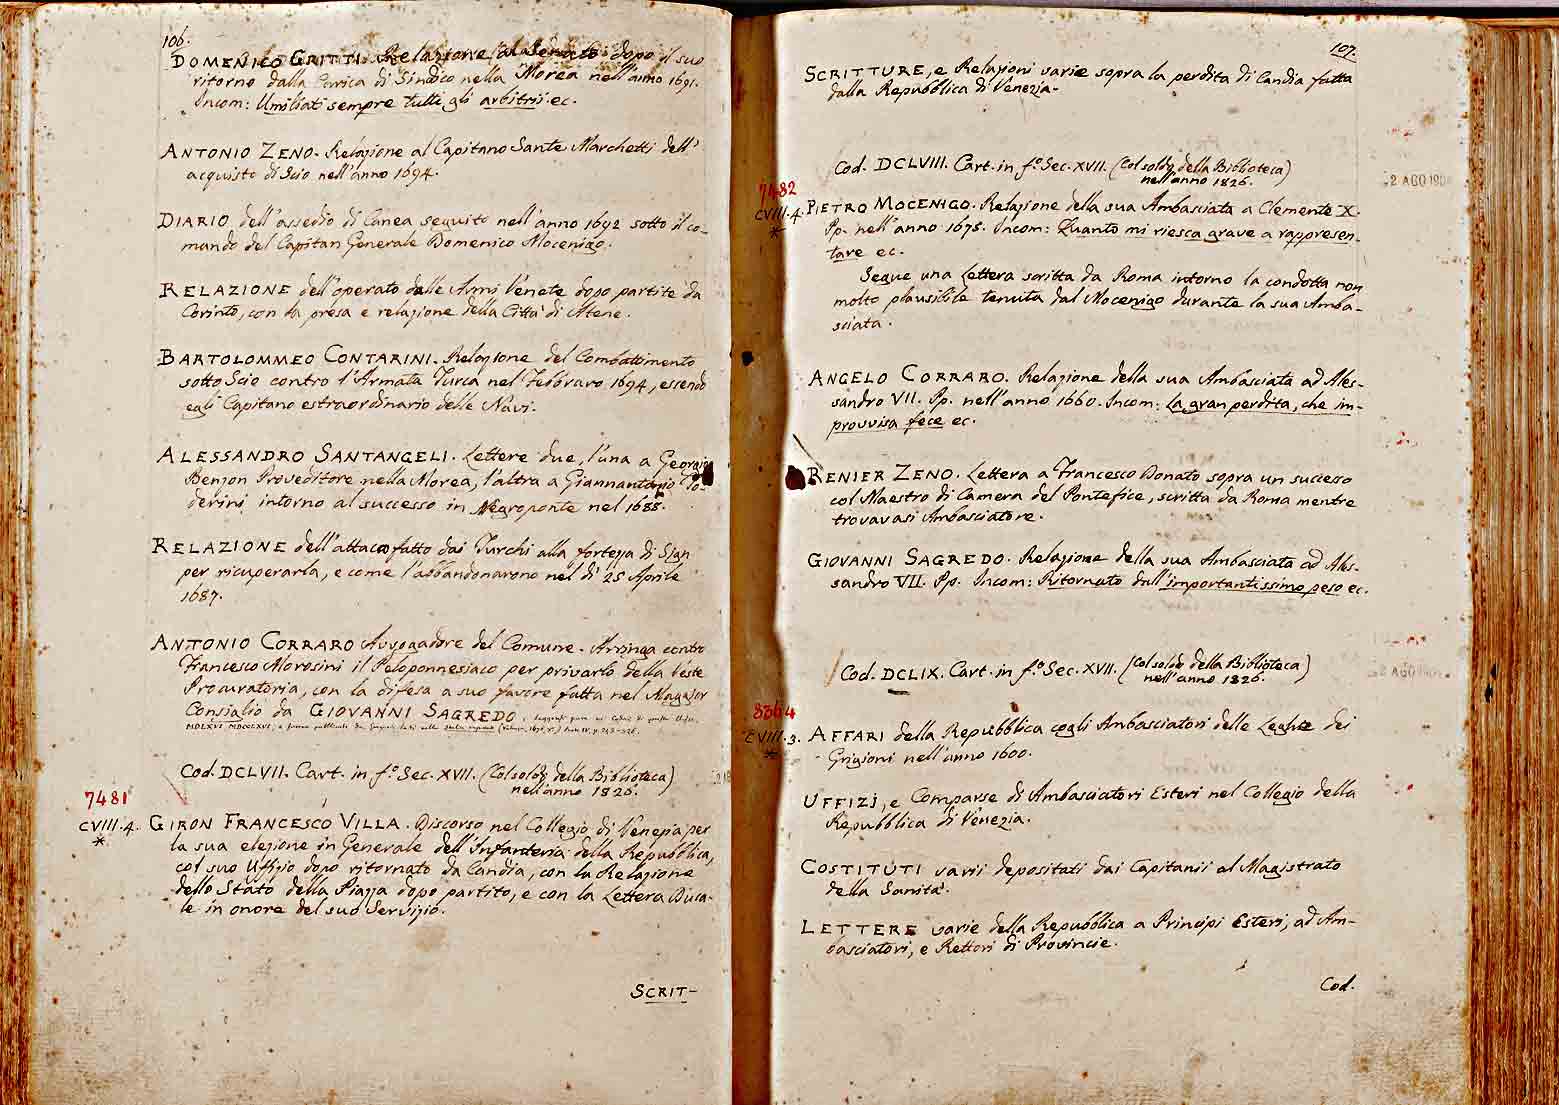 106.
DOMENICO GRITTI. Relazione al Senato dopo il suo
ritorno dalla Carica di Sindico nella Morea nell'anno 1691.
Incom: Umiliati sempre tutti gli arbitrii ec.
ANTONIO ZENO. Relazione al Capitano Sante Marchetti dell'
acquisto di Scio nell'anno 1694.
DIARIO dell'assedio di Canea seguito nell'anno 1692 sotto il co-
mando del Capitan Generale Domenico Mocenigo.
RELAZIONE dell'operato dalle Armi Venete dopo partite da
Corinto, con la presa e relazione della Città di Atene.
BARTOLOMMEO CONTARINI. Relazione del Combattimento
sotto Scio contro l'Armata Turca nel Febbraro 1694, essendo
egli Capitano estraordinario delle Navi.
ALESSANDRO SANTANGELI. Lettere due, l'una a Georgio
Benzon Proveditore nella Morea, l'altra a Giannantonio Po-
derini intorno al successo in Negroponte nel 1688.
RELAZIONE dell'attacco fatto dai Turchi alla fortezza di Sign
per ricuperarla, e come l'abbandonarono nel dì 25 Aprile
1687.
ANTONIO CORRARO Avvogadore del Comune. Arringa contro
Francesco Morosini il Peloponnesiaco per privarlo della Veste
Procuratoria, con la difesa a suo favore fatta nel Maggior
Consiglio da GIOVANNI SAGREDO.
Cod. DCLVII. Cart. in f.º Sec. XVII. (Col soldo della Biblioteca)
nell'anno 1826.
7481
CVIII.4. GIRON FRANCESCO VILLA. Discorso nel Collegio di Venezia per
*
la sua elezione in Generale dell'Infanteria della Repubblica,
col suo Uffizio dopo ritornato da Candia, con la Relazione
dello Stato della Piazza dopo partito, e con la Lettera Duca-
le in onore del suo Servizio.
SCRIT-
107.
SCRITTURE, e Relazioni varie sopra la perdita di Candia fatta
dalla Repubblica di Venezia.
Cod. DCLVIII. Cart. in f.º Sec. XVII. (Col soldo della Biblioteca)
nell'anno 1826.
2 AGO
7482
CVIII.4. PIETRO MOCENIGO. Relazione della sua Ambasciata a Clemente X.
*
Pp. nell'anno 1675. Incom: Quanto mi riesca grave a rappresen-
tare ec.
Segue una Lettera scritta da Roma intorno la condotta non
molto plausibile tenuta dal Mocenigo durante la sua Amba-
sciata.
ANGELO CORRARO. Relazione della sua Ambasciata ad Ales-
sandro VII. Pp. nell'anno 1660. Incom: La gran perdita, che im-
provvisa fece ec.
RENIER ZENO. Lettera a Francesco Donato sopra un successo
col Maestro di Camera del Pontefice, scritta da Roma mentre
trovavasi Ambasciatore.
GIOVANNI SAGREDO. Relazione della sua Ambasciata ad Ales-
sandro VII. Pp. Incom: Ritornato dall'importantissimo peso ec.
Cod. DCLIX. Cart. in f.º Sec. XVII. (Col soldo della Biblioteca)
nell'anno 1826.
8364
CVIII.3. AFFARI della Repubblica cogli Ambasciatori delle Leghe dei
*
Grigioni nell'anno 1600.
UFFIZJ, e Comparse di Ambasciatori Esteri nel Collegio della
Repubblica di Venezia.
COSTITUTI varii depositati dai Capitanii al Magistrato
della Sanità.
LETTERE varie della Repubblica a Principi Esteri, ad Am-
basciatori, e Rettori di Provincie.
Cod.